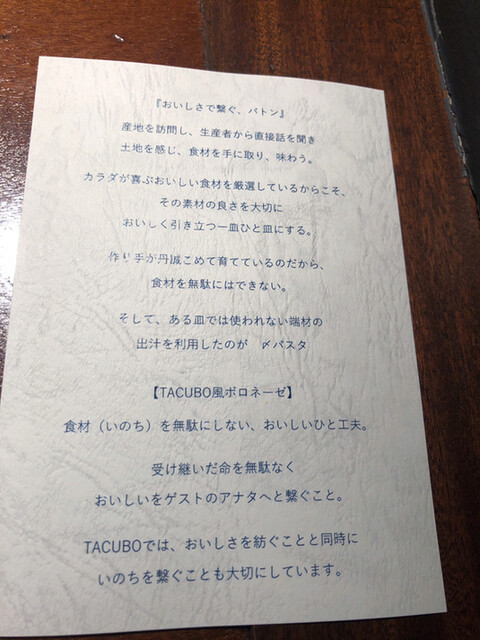 『おいしさで繋ぐ、バトン』
産地を訪問し、生産者から直接話を聞き
土地を感じ、食材を手に取り、味わう。
カラダが喜ぶおいしい食材を厳選しているからこそ、
その素材の良さを大切に
おいしく引き立つ一皿ひと皿にする。
作り手が丹誠こめて育てているのだから、
食材を無駄にはできない。
そして、ある皿では使われない端材の
出汁を利用したのが　〆パスタ
【TACUBO風ボロネーゼ】
食材（いのち）を無駄にしない、おいしいひと工夫。
受け継いだ命を無駄なく
おいしいをゲストのアナタへと繋ぐこと。
TACUBOでは、おいしさを紡ぐことと同時に
いのちを繋ぐことも大切にしています。